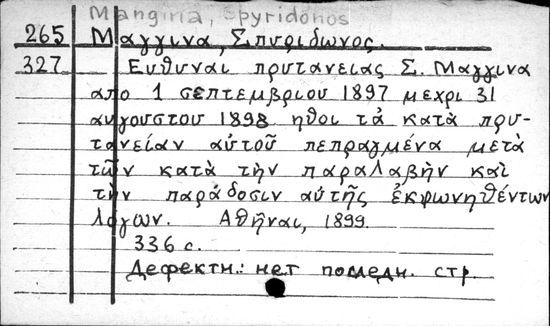 Mangina, Spyridonos
265 Μαγγινα, Σπυριδωνος.
327 Ευθυναι πρυτανειας Σ. Μαγγινα
απο 1 σεπτεμβριου 1897 μεχρι 31
αυγουστου 1898 ηθοι τὰ κατὰ πρυ-
τανείαν αὐτοῦ πεπραγμένα μετὰ
τῶν κατὰ τὴν παραλαβὴν καὶ
τὴν παράδοσιν αὐτῆς ἐκφωνηθέντων
λόγων. Αθῆναι, 1899.
336 с.
Дефектн.: нет последн. стр.